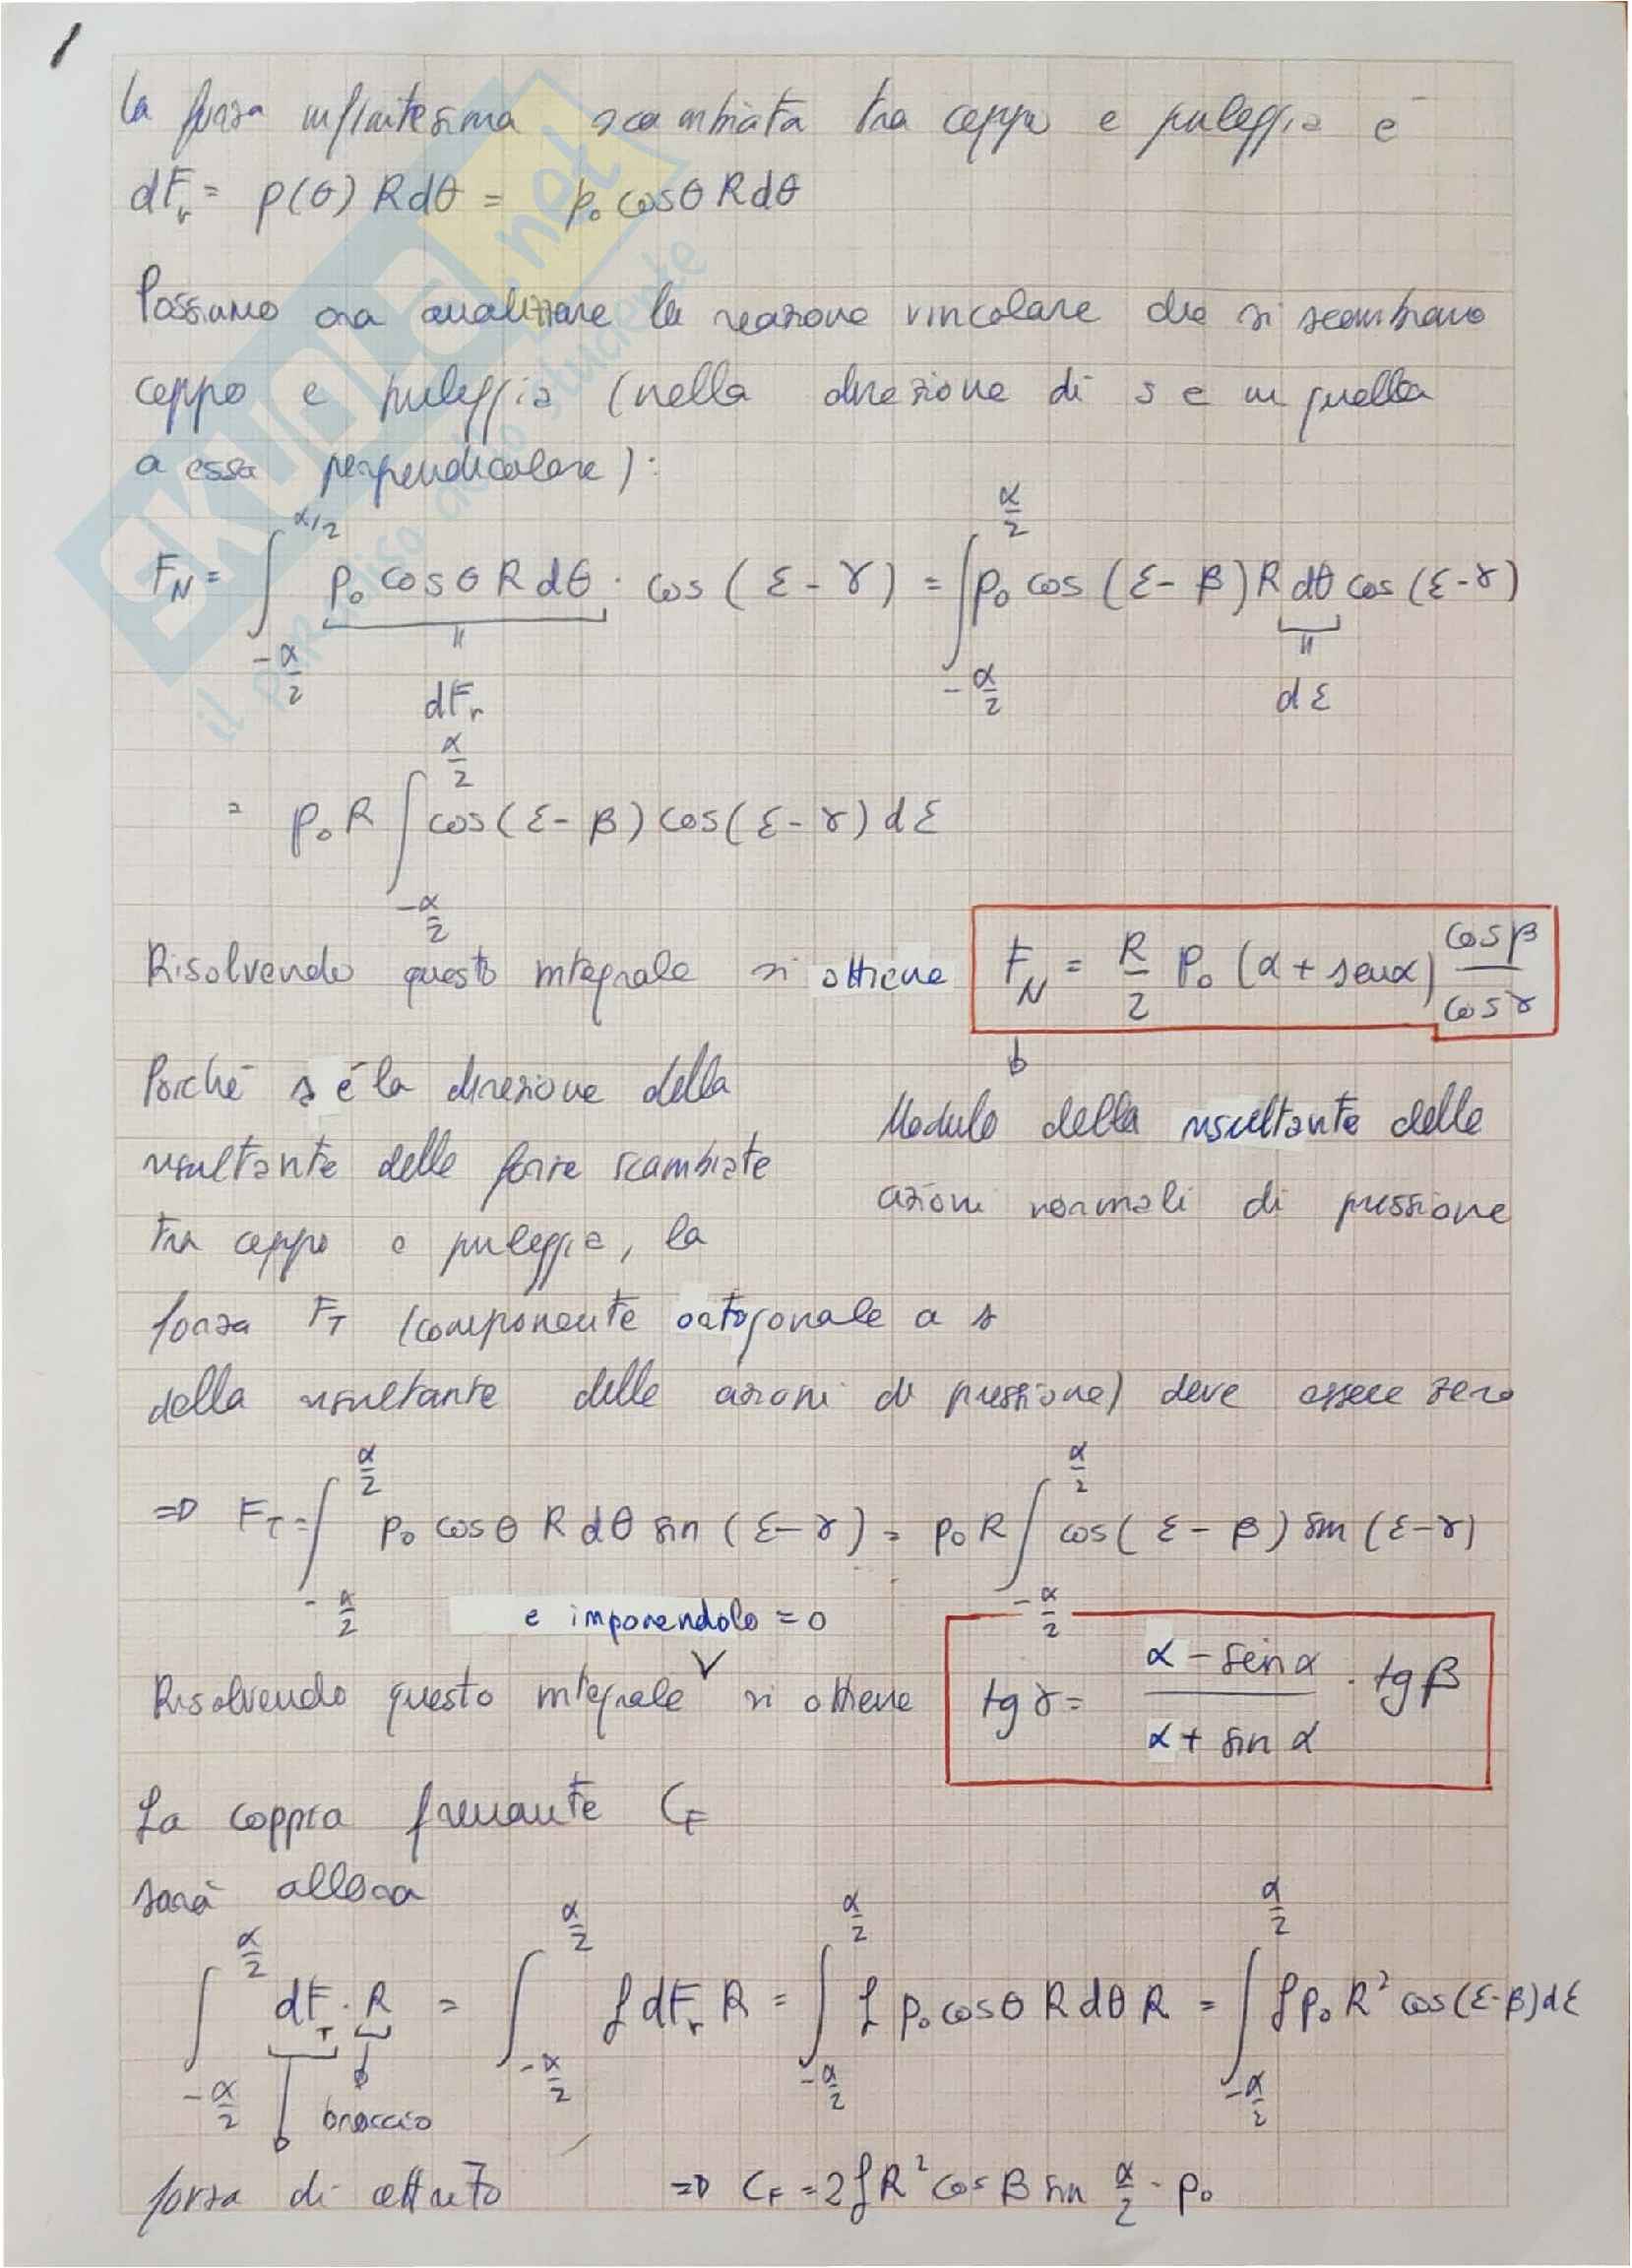 1
La forza infinitesima scambiata tra ceppo e puleggia è
dF_r = p(θ) R dθ = p₀ cosθ R dθ
Possiamo ora analizzare la reazione vincolare che si scambiano
ceppo e puleggia (nella direzione di s e in quella
a essa perpendicolare):
F_N = ∫_{-α/2}^{α/2} p₀ cosθ R dθ · cos(ε - γ) = ∫_{-α/2}^{α/2} p₀ cos(ε - β) R dθ cos(ε - γ)
dF_r dε
= p₀ R ∫_{-α/2}^{α/2} cos(ε - β) cos(ε - γ) dε
Risolvendo questo integrale si ottiene F_N = R/2 p₀ (α + senα) cosβ/cosγ
Modulo della risultante delle
azioni normali di pressione
Poiché s é la direzione della
risultante delle forze scambiate
tra ceppo e puleggia, la
forza F_T (componente ortogonale a s
della risultante delle azioni di pressione) deve essere zero
=> F_T = ∫_{-α/2}^{α/2} p₀ cosθ R dθ sin(ε - γ) = p₀ R ∫_{-α/2}^{α/2} cos(ε - β) sin(ε - γ)
e imponendolo = 0
Risolvendo questo integrale si ottiene tg γ = (α - sen α)/(α + sin α) · tg β
La coppia frenante C_F
sarà allora
∫_{-α/2}^{α/2} dF_T · R = ∫_{-α/2}^{α/2} f dF_r R = ∫_{-α/2}^{α/2} f p₀ cosθ R dθ R = ∫_{-α/2}^{α/2} f p₀ R² cos(ε-β) dε
braccio
forza di attrito => C_F = 2 f R² cos β sin α/2 · p₀
SKUOLA.net
il paradiso dello studente